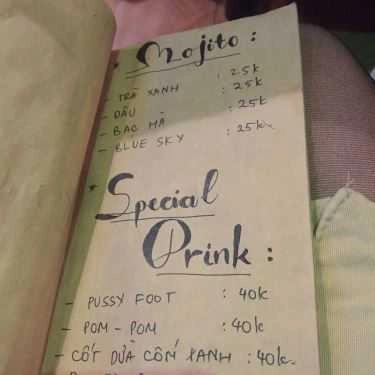 * Mojito :
- TRÀ XANH : 25k
- DÂU : 25k
- BẠC HÀ : 25k
- BLUE SKY : 25k
* Special
Drink :
- PUSSY FOOT : 40k
- POM - POM : 40k
- CỐT DỪA CỐM XANH : 40k